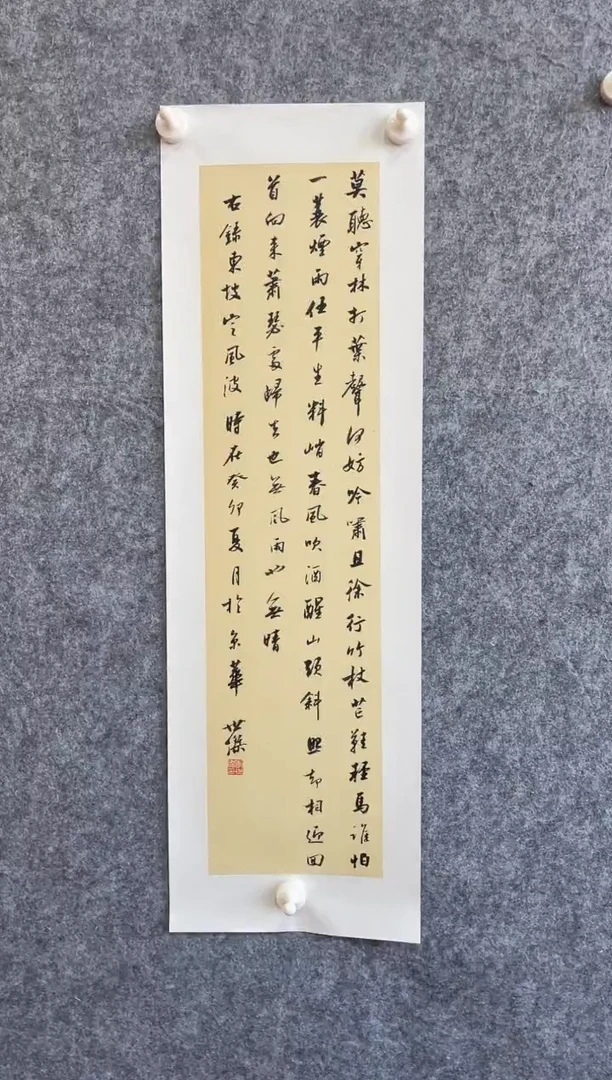 莫聽穿林打葉聲何妨吟嘯且徐行竹杖芒鞋輕馬誰怕
一蓑煙雨任平生料峭春風吹酒醒山頭斜照却相迎回
首向來蕭瑟處歸去也無風雨也無晴
右錄東坡定風波時在癸卯夏月於京華 世傑